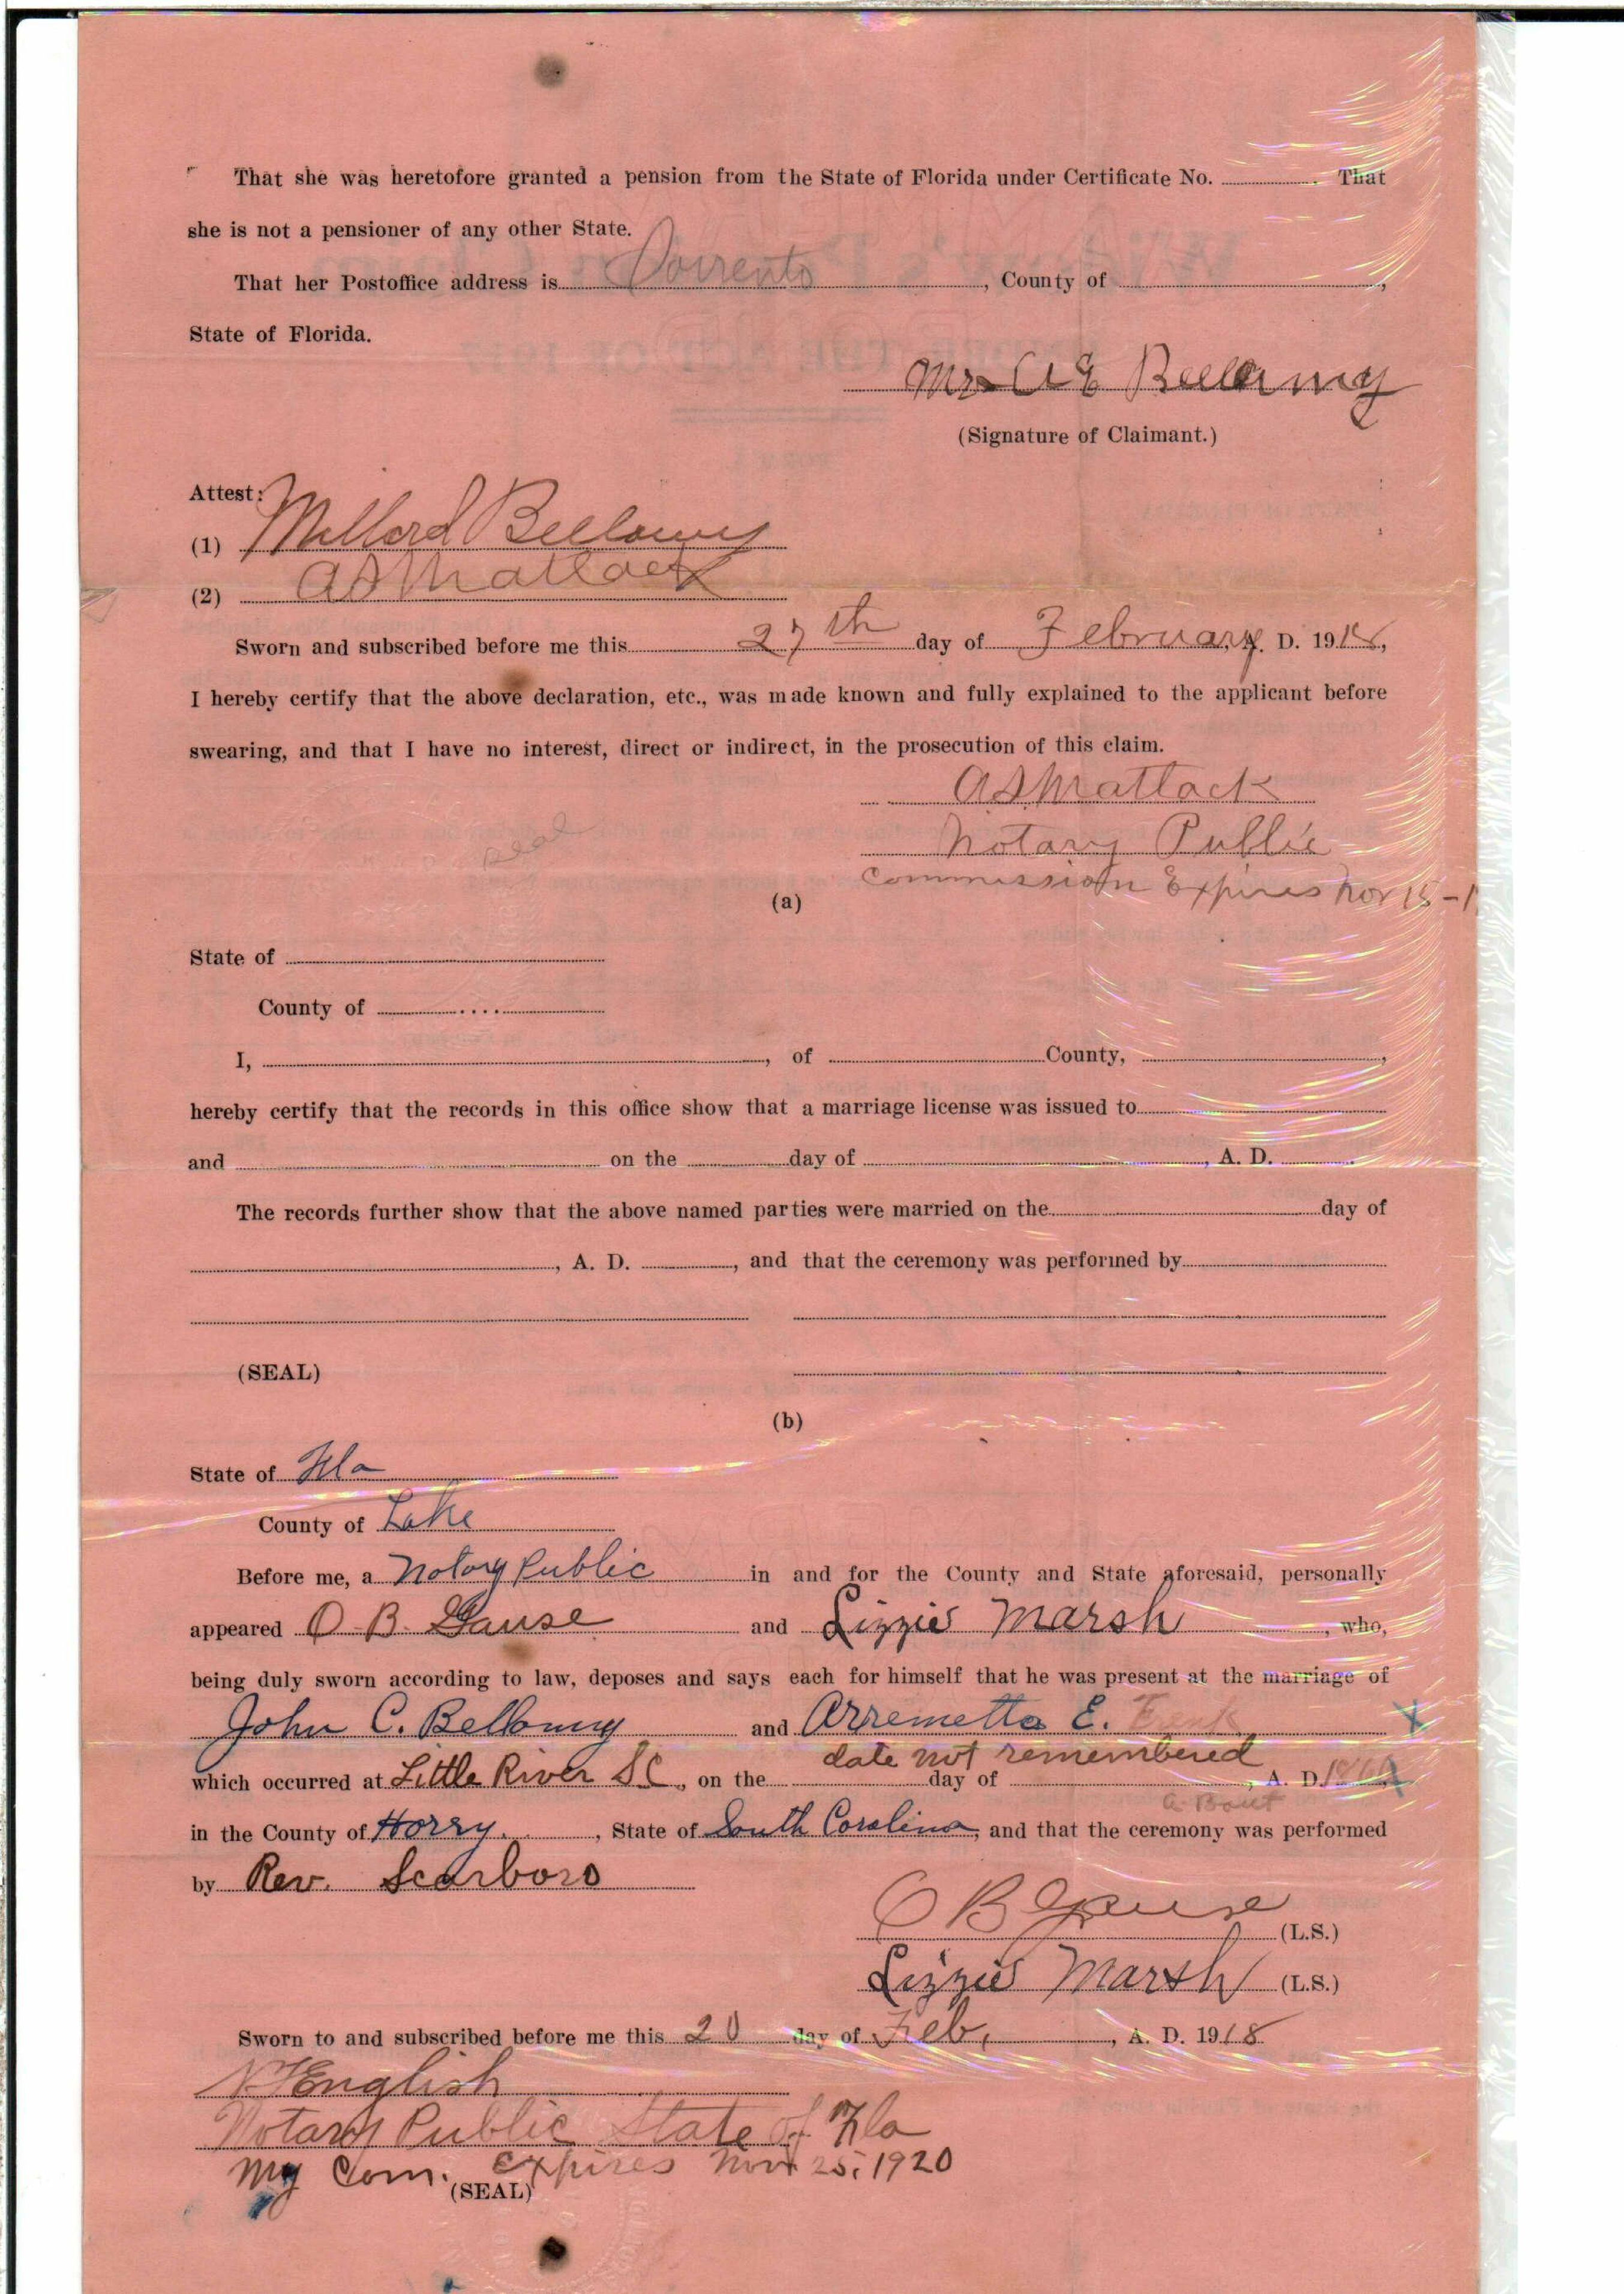 That she was heretofore granted a pension from the State of Florida under Certificate No. ............ That
she is not a pensioner of any other State.
That her Postoffice address is Sorrento, County of ............,
State of Florida.
Mrs A E Bellamy
(Signature of Claimant.)
Attest:
(1) Millard Bellamy
(2) A S Matlack
Sworn and subscribed before me this 27th day of February, A. D. 1918,
I hereby certify that the above declaration, etc., was made known and fully explained to the applicant before
swearing, and that I have no interest, direct or indirect, in the prosecution of this claim.
A S Matlack
Notary Public
seal
Commission Expires Nov 15 - 1
(a)
State of ............
County of ............
I, ............, of ............ County, ............,
hereby certify that the records in this office show that a marriage license was issued to ............
and ............ on the ............ day of ............, A. D. ............
The records further show that the above named parties were married on the ............ day of
............, A. D. ............, and that the ceremony was performed by ............
(SEAL)
(b)
State of Fla
County of Lake
Before me, a Notary Public in and for the County and State aforesaid, personally
appeared O B. Gause and Lizzie Marsh, who,
being duly sworn according to law, deposes and says each for himself that he was present at the marriage of
John C. Bellamy and Arremetta E. X
date not remembered
which occurred at Little River S C, on the ............ day of ............, A. D.
a Bout
in the County of Horry, State of South Carolina, and that the ceremony was performed
by Rev. Scarboro
O B Gause (L.S.)
Lizzie Marsh (L.S.)
Sworn to and subscribed before me this 20 day of Feb., A. D. 1918
English
Notary Public State of Fla
My Com. expires Nov 25, 1920
(SEAL)